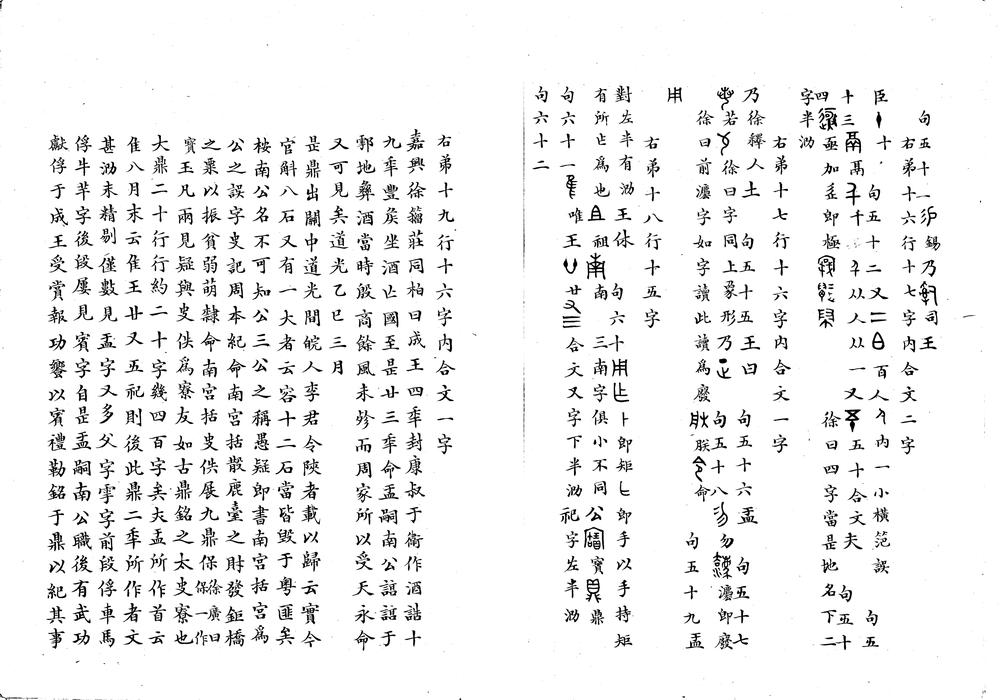 句五十一錫乃司王
右弟十六行十七字內合文二字
臣十 句五十二又二百人內一小橫范誤 句五
十三鬲千从人从一又五十合文夫 句五十
四亟加辵卽極 徐曰四字當是地名下二
字半泐
右弟十七行十六字內合文一字
乃徐釋人土 句五十五王曰 句五十六盂 句五十七
若徐曰字同上象形乃正 句五十八勿灋卽廢
徐曰前灋字如字讀此讀爲廢朕命 句五十九盂
用
右弟十八行十五字
對左半有泐王休 句六十用卜卽矩匕卽手以手持矩
有所亾爲也且祖南 三南字俱小不同公寶鼎
句六十一隹唯王廿又三合文又字下半泐祀字左半泐
句六十二
右弟十九行十六字內合文一字
嘉興徐籀莊同柏曰成王四秊封康叔于衞作酒誥十
九秊豐矦坐酒亾國至是廿三秊命盂嗣南公諄諄于
鄷地彝酒當時殷商餘風未殄而周家所以受天永命
又可見矣道光乙巳三月
是鼎出關中道光間皖人李君令陝者載以歸云實今
官斛八石又有一大者云容十二石當皆毀于粵匪矣
桉南公名不可知公三公之稱愚疑卽書南宮括宮爲
公之誤字史記周本紀命南宮括散鹿臺之財發鉅橋
之粟以振貧弱萌隸命南宮括史佚展九鼎保徐廣曰保一作
寶玉凡兩見疑與史佚爲寮友如古鼎銘之太史寮也
大鼎二十行行約二十字幾四百字矣夫盂所作首云
隹八月末云隹王廿又五祀則後此鼎二秊所作者文
甚泐未精剔僅數見盂字又多父字字前段俘車馬
俘牛羊字後段屢見賓字自是盂嗣南公職後有武功
獻俘于成王受賞報功饗以賓禮勒銘于鼎以紀其事